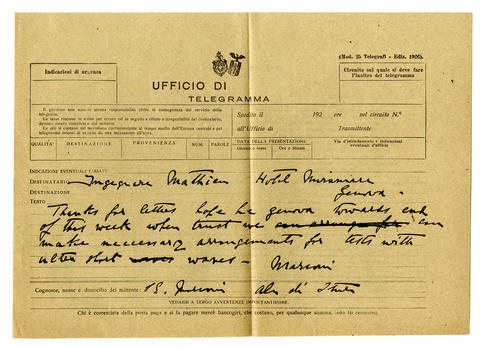 (Mod. 25 Telegrafi - Ediz. 1926).
Indicazioni di urgenza
Circuito sul quale si deve fare
l'inoltro del telegramma
UFFICIO DI
TELEGRAMMA
Il governo non assume alcuna responsabilità civile in conseguenza del servizio della
telegrafia.
Le tasse riscosse in meno per errore od in seguito a rifiuto o irreperibilità del destinatario,
devono essere completate dal mittente.
Le ore si contano sul meridiano corrispondente al tempo medio dell'Europa centrale
Spedito il 192 ore pel circuito N.º
all'Ufficio di Trasmittente
QUALITÀ DESTINAZIONE PROVENIENZA NUM. PAROLE DATA DELLA PRESENTAZIONE Via d'istradamento e indicazioni
Giorno e mese Ore e Minuti eventuali d'ufficio
INDICAZIONI EVENTUALI TASSATE
DESTINATARIO Ingegnere Mathieu Hotel Miramare
DESTINAZIONE Genova
TESTO
Thanks for letter hope be genova towards end
of this week when trust we can
make neccessary arrangements for tests with
ultra short waves - Marconi
Cognome, nome e domicilio del mittente: G. Marconi
VEDANSI A TERGO AVVERTENZE IMPORTANTISSIME.
Chi è correntista della posta paga e si fa pagare mercè bancogiri, che costano, per qualunque somma, solo 10 centesimi.